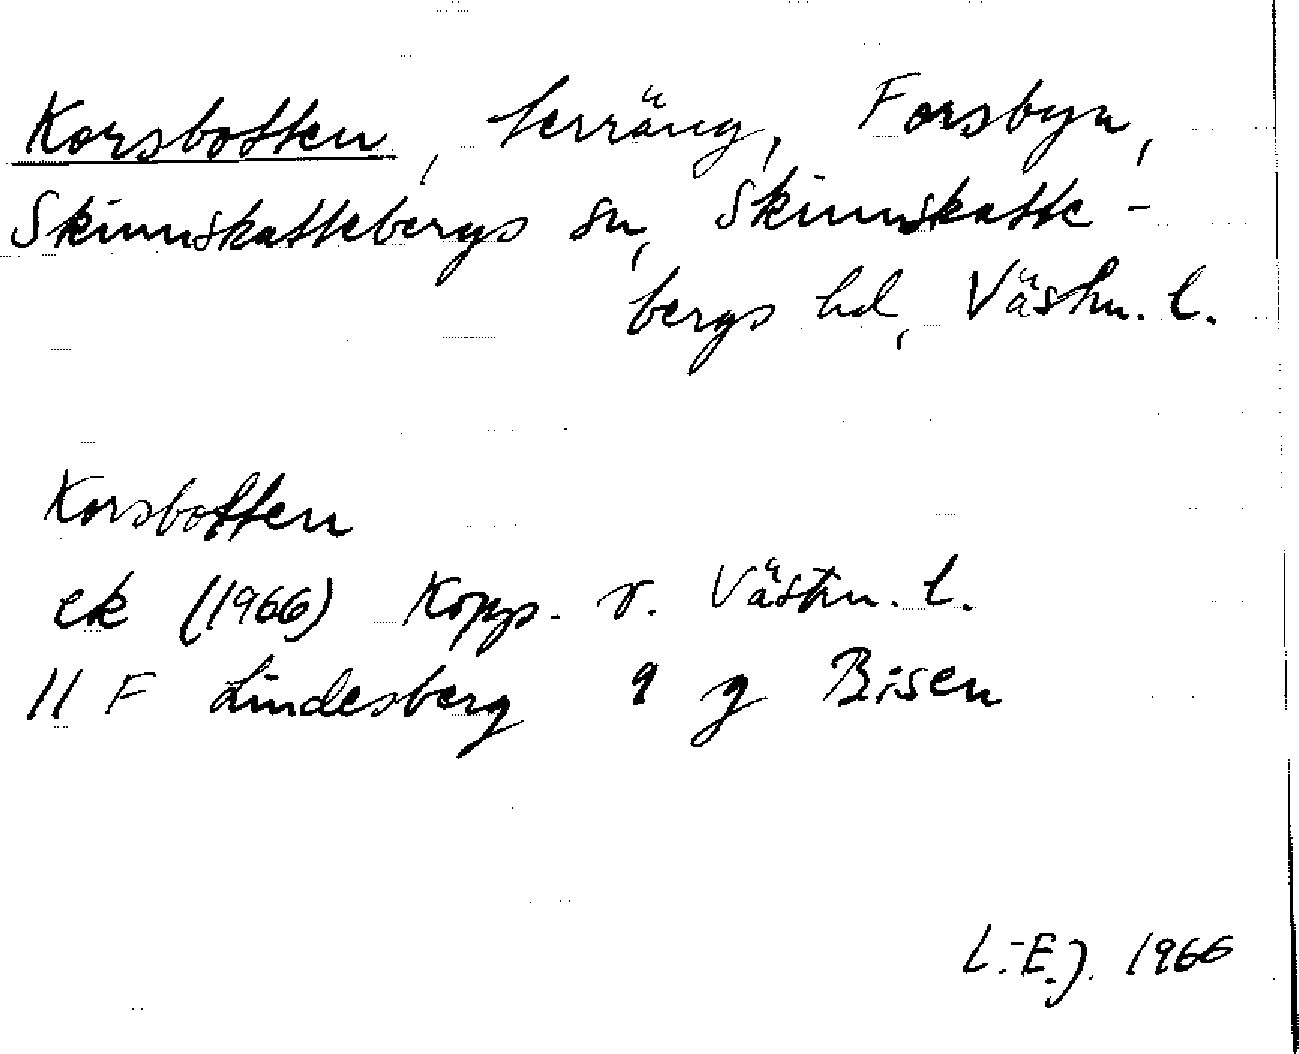 Korsbotten, terräng, Forsbyn,
Skinnskattebergs sn, Skinnskatte-
bergs hd, Västm. l.
Korsbotten
ek (1966) Kopp. o. Västm. l.
11 F Lindesberg 9 g Bisen
L.-E.J. 1966